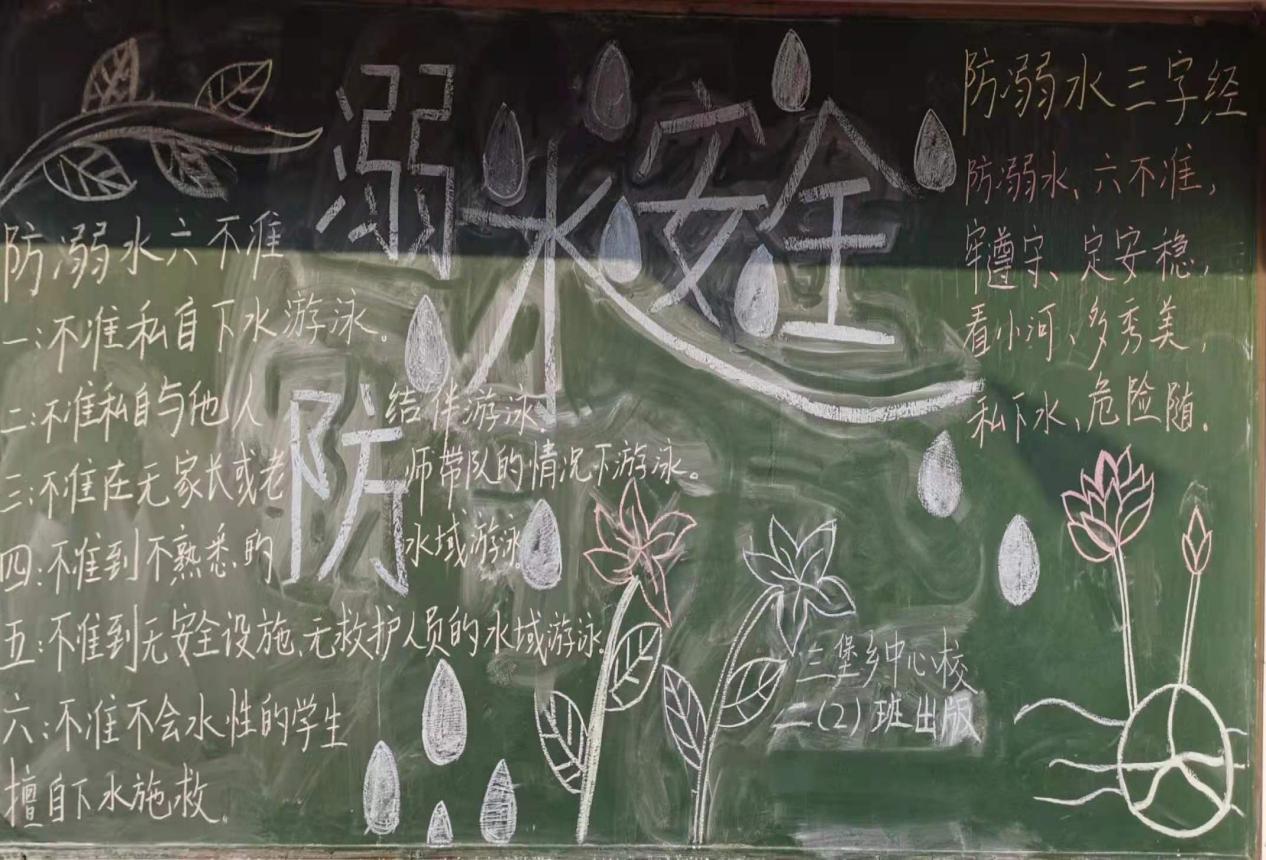 溺水安全
防
防溺水六不准
一:不准私自下水游泳。
二:不准私自与他人结伴游泳.
三:不准在无家长或老师带队的情况下游泳。
四:不准到不熟悉的水域游泳。
五:不准到无安全设施、无救护人员的水域游泳。
六:不准不会水性的学生
擅自下水施救。
防溺水三字经
防溺水、六不准,
牢遵守、定安稳,
看小河、多秀美,
私下水、危险随.
三堡乡中心校
二(2)班出版